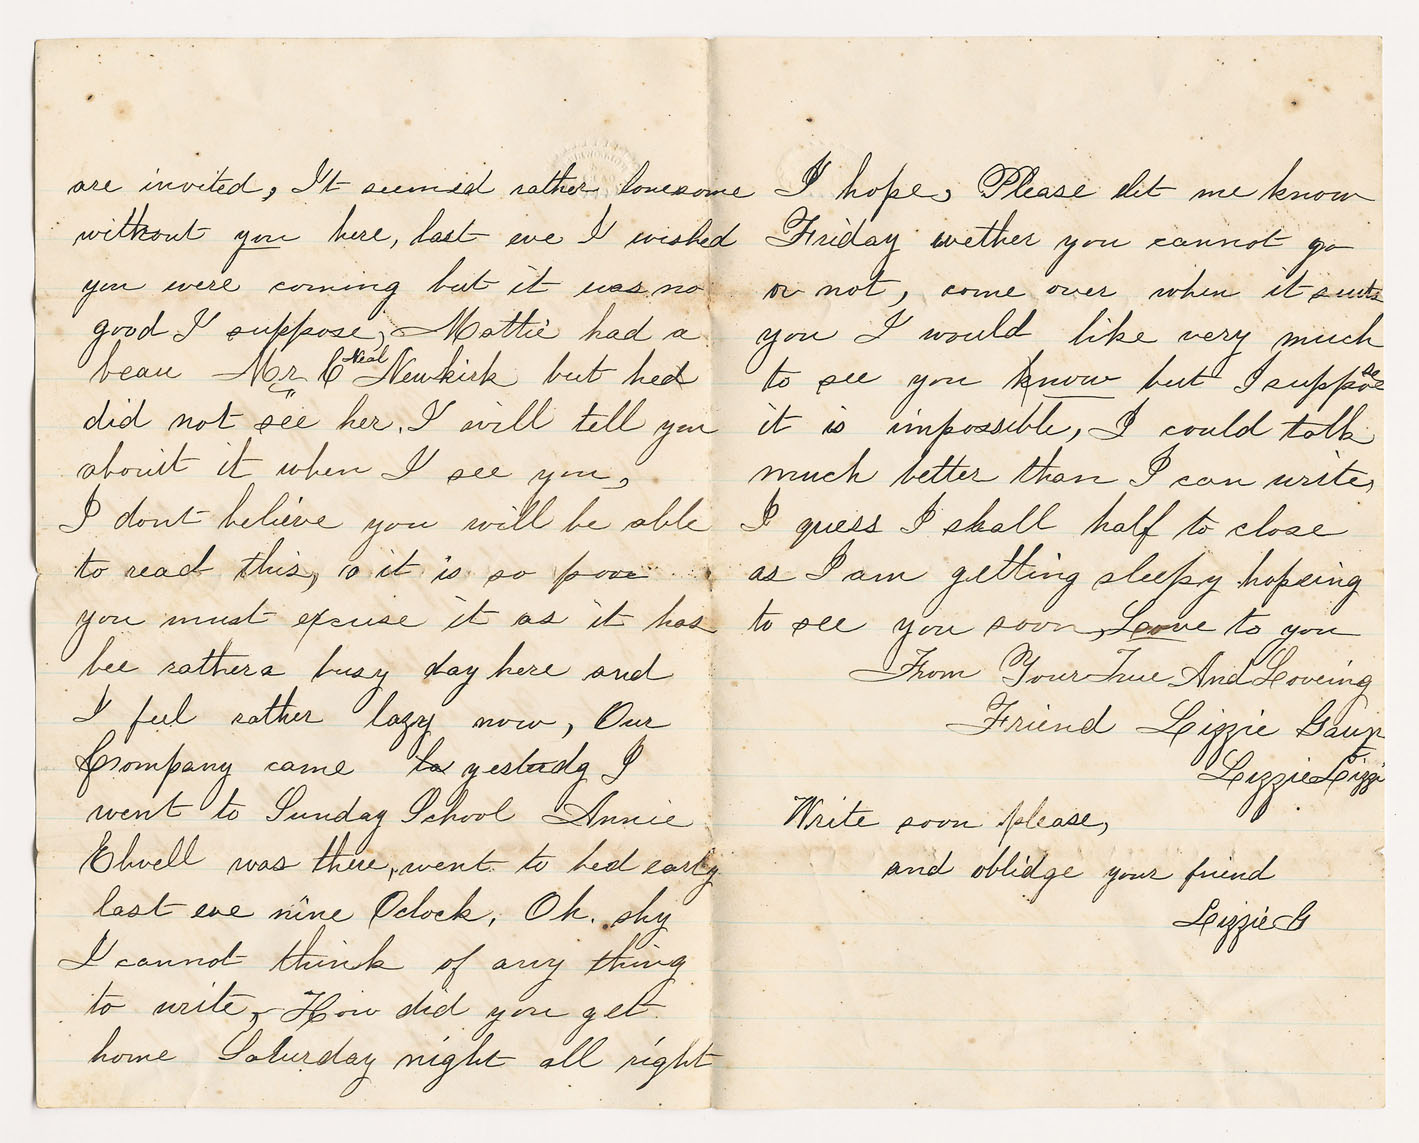 are invited, It seemed rather lonesome
without you here, last eve I wished
you were coming but it was no
good I suppose, Mattie had a
beau Mr C Neal Newkirk but hed
did not see her. I will tell you
abouit it when I see you,
I dont believe you will be able
to read this, it is so poor
you must excuse it as it has
bee rather a busy day here and
I feel rather lazy now, Our
Company came yesterdg I
went to Sunday School Annie
Elwell was there, went to bed early
last eve nine Oclock, Oh. shy
I cannot think of any thing
to write, How did you get
home Saturday night all right
I hope, Please let me know
Friday wether you cannot go
or not, come over when it suits
you I would like very much
to see you know but I suppose
it is impossible, I could talk
much better than I can write,
I guess I shall half to close
as I am getting sleepy hopeing
to see you soon, Love to you
From Your True And Loveing
Friend Lizzie
Lizzie Lizzi
Write soon please,
and oblidge your friend
Lizzie G